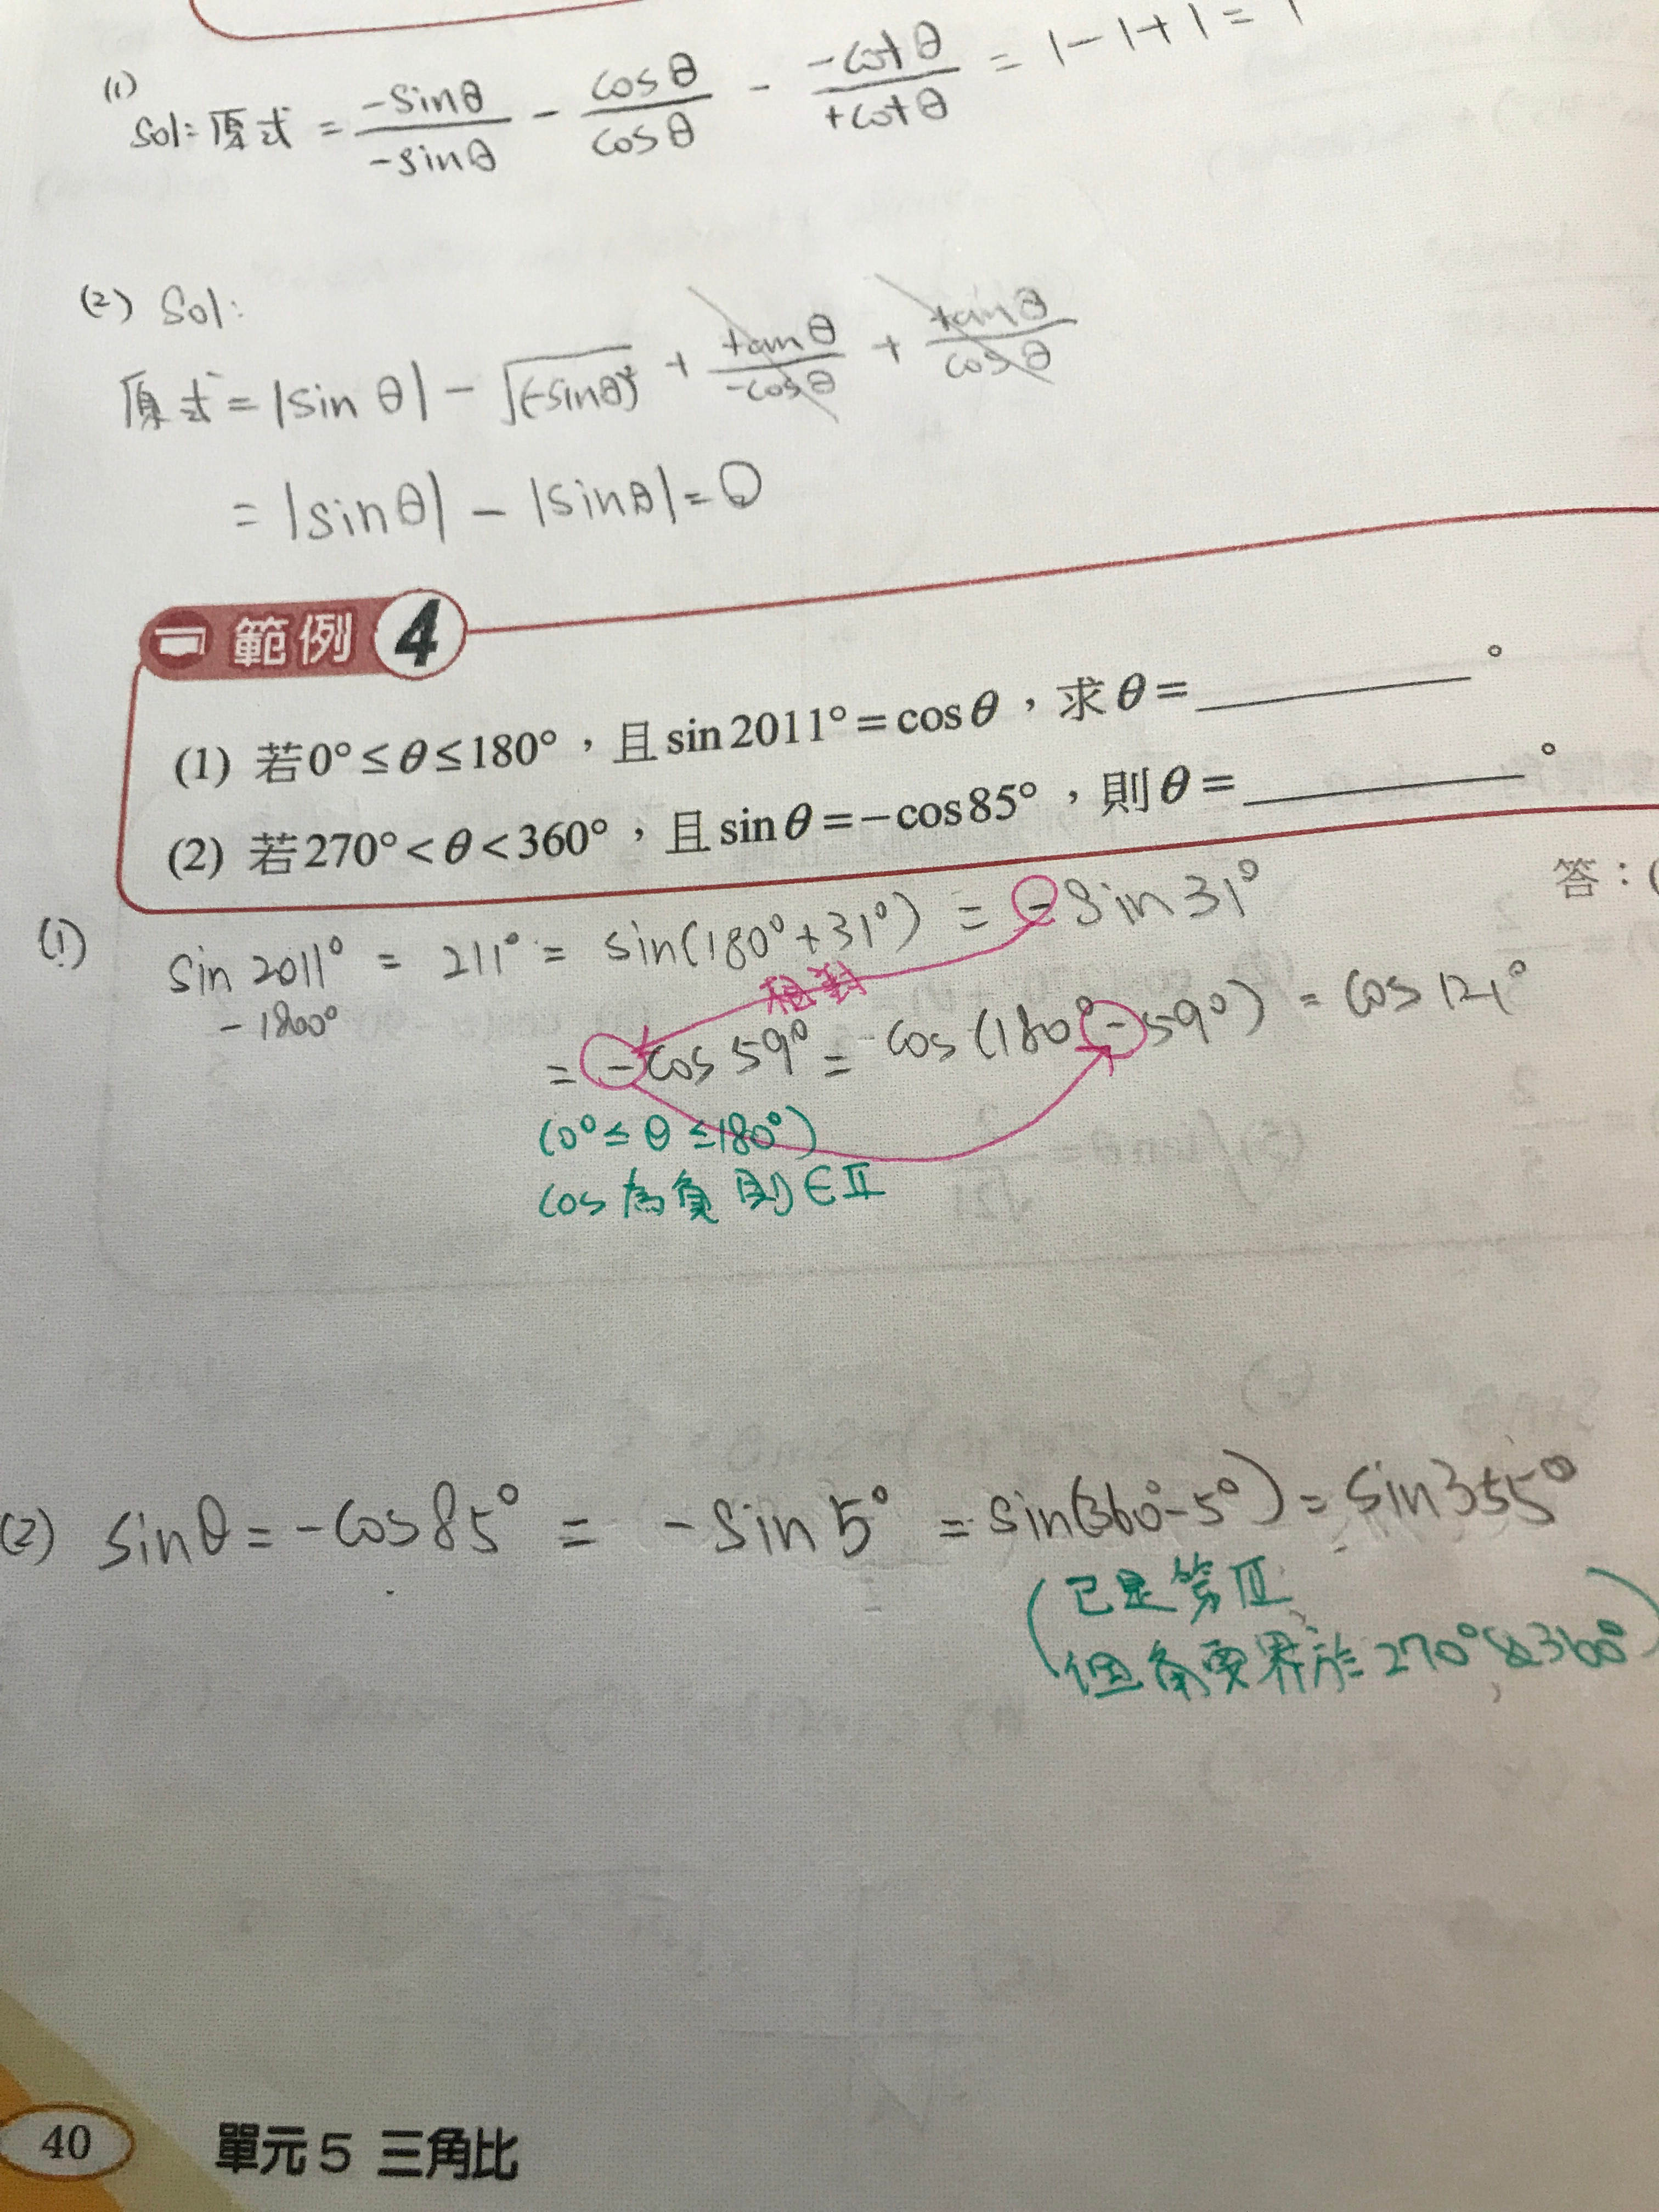 (1)
Sol: 原式 = -sinθ/-sinθ - cosθ/cosθ - -cotθ/+cotθ = 1-1+1 = 1
(2) Sol:
原式 = |sin θ| - √(-sinθ)² + tanθ/-cosθ + tanθ/cosθ
= |sinθ| - |sinθ| = 0
範例 4
(1) 若0°≤θ≤180°，且sin2011°=cosθ，求θ=__________。
(2) 若270°<θ<360°，且sinθ=-cos85°，則θ=__________。
答：(
(1) sin 2011° = 211° = sin(180°+31°) = -sin31°
-1800°
相對
= -cos59° = cos(180°-59°) = cos 121°
(0°≤θ≤180°)
cos為負 則∈Ⅱ
(2) sinθ = -cos85° = -sin5° = sin(360°-5°) = sin355°
(已是第Ⅱ
但角要界於270°&360°)
40 單元5 三角比